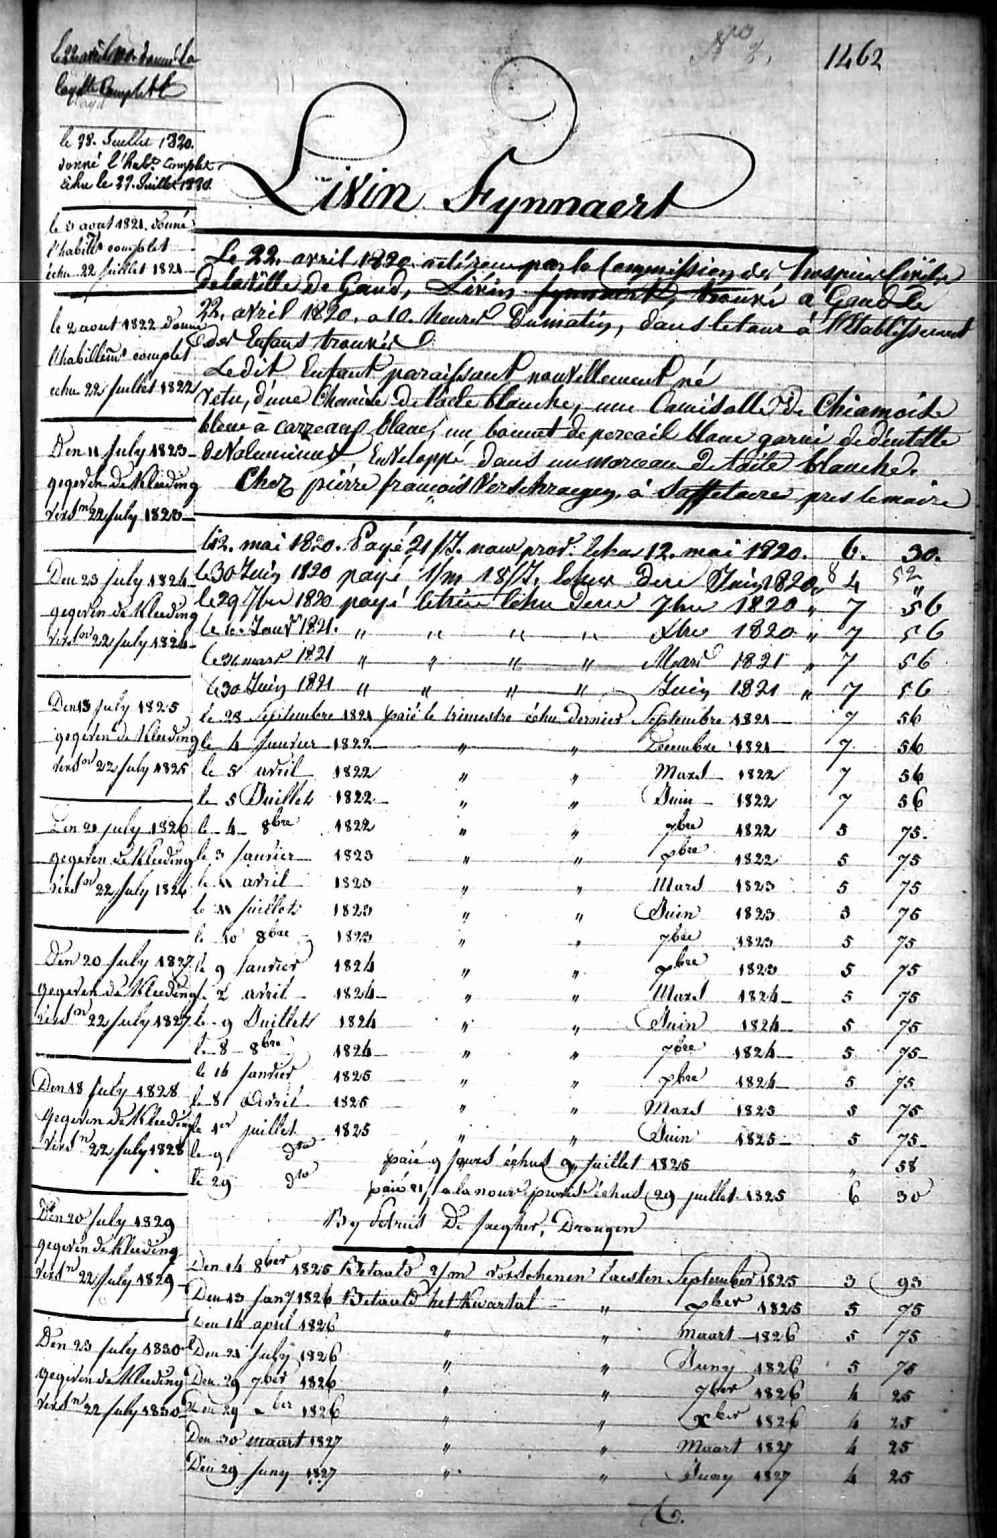 1462
Livin Fynnaert
le 22 avril 1820 donné la
layette complette
le 28. Juillet 1820.
donné l'hab.t complet
échu le 27. Juillet 1820.
le 3 aout 1821. donné
l'habillem.t complet
échu 22 juillet 1821
le 2 aout 1822 donné
l'habillem.t complet
échu 22 juillet 1822
Den 11 July 1823
gegeven de Kleeding
versn 22 july 1823
Den 23 july 1824
gegeven de Kleeding
versn 22 july 1824
Den 13 july 1825
gegeven de Kleeding
versn 22 july 1825
Den 21 july 1826
gegeven de Kleeding
versn 22 july 1826
Den 20 july 1827
gegeven de Kleeding
versn 22 july 1827
Den 18 july 1828
gegeven de Kleeding
versn 22 july 1828
Den 20 july 1829
gegeven de Kleeding
versn 22 july 1829
Den 23 july 1830
gegeven de Kleeding
versn 22 july 1830
Le 22. avril 1820 a été reçu par la Commission des hospices Civils
de la Ville de Gand, Livin Fynnaert, trouvé a Gand le
22. avril 1820. a 10. heures du matin, dans le tour à l'Etablissement
des Enfans trouvés
Ledit Enfant paraissant nouvellement né
vetu, d'une Chemise de toile blanche, une Camisolle de Chiamoise
bleue à carreaux blancs, un bonnet de percail blanc garni de dentelle
Enveloppé dans un morceau de toile blanche.
Chez pièrre françois Verschraegen, à Saffelaere pres le maire
le 12. mai 1820. Payé 21/J. nour prov.e échus 12. mai 1820. 6. 30.
le 30 Juin 1820 payé 1/m 18/J. échus Dere Juin 1820 8 52
le 29 7bre 1820 payé letrim échu Dere 7bre 1820 " 7 56
Janv 1821. " " " " Xbre 1820 " 7 56
le 31 mars 1821 " " " " Mars 1821 " 7 56
le 30 Juin 1821 " " " " Juin 1821 " 7 56
le 28 Septembre 1821 paié le trimestre échu dernier Septembre 1821 7 56
le 4 Janvier 1822 " " Decembre 1821 7 56
le 5 avril 1822 " " Mars 1822 7 56
le 5 Juillet 1822 " " Juin 1822 7 56
le 4 8bre 1822 " " 7bre 1822 5 75
le 3 Janvier 1823 " " Xbre 1822 5 75
le 11 avril 1823 " " Mars 1823 5 75
le 11 Juillet 1823 " " Juin 1823 5 75
le 10 8bre 1823 " " 7bre 1823 5 75
le 9 Janvier 1824 " " Xbre 1823 5 75
le 2 avril 1824 " " Mars 1824 5 75
le 9 Juillet 1824 " " Juin 1824 5 75
le 8 8bre 1824 " " 7bre 1824 5 75
le 14 Janvier 1825 " " Xbre 1824 5 75
le 8 Avril 1825 " " Mars 1825 5 75
le 1er juillet 1825 " " Juin 1825 5 75
le 9 dto paié 9 jours échus 9 Juillet 1825 " 58
le 29 dto paié 21/J a la nour.e provis.e échus 29 juillet 1825 6 30
By Petrus De Jaegher, Drongen
Den 14 8ber 1825 Betaald 2/m verschenen laesten September 1825 3 93
Den 13 Jany 1826 Betaald het Kwartal " Xber 1825 5 75
Den 14 april 1826 " " Maart 1826 5 75
Den 21 July 1826 " " Juny 1826 5 75
Den 29 7ber 1826 " " 7ber 1826 4 25
Den 29 Xber 1826 " " Xber 1826 4 25
Den 30 maart 1827 " " Maart 1827 4 25
Den 29 Juny 1827 " " Juny 1827 4 25